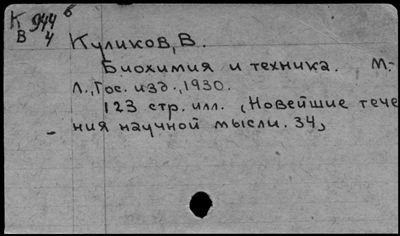 К 944 б
В 4
Куликов, В.
Биохимия и техника. М.-
Л., Гос. изд., 1930.
123 стр. илл. (Новейшие тече
ния научной мысли. 34)